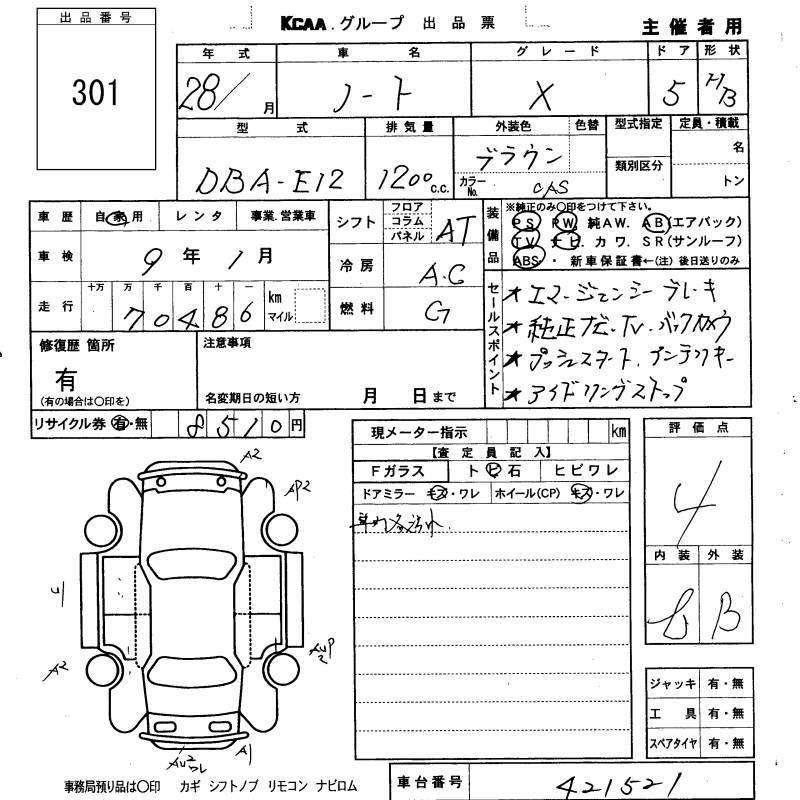 出品番号
301
KCAA.グループ 出品票
主催者用
年式 車名 グレード ドア 形状
28/ 月 ノート X 5 H/B
型式 排気量 外装色 色替 型式指定 定員・積載
DBA-E12 1200 c.c. ブラウン 類別区分 名
カラーNo. CAS トン
車歴 自家用 レンタ 事業.営業車
車検 9年1月
走行 十万 万 千 百 十 一 km マイル
70486
シフト フロア コラム パネル AT
冷房 A.C
燃料 G
装備品 ※純正のみ○印をつけて下さい。
PS PW 純AW. AB(エアバック)
TV ナビ カワ. SR(サンルーフ)
ABS ・ 新車保証書←(注)後日送りのみ
セールスポイント
★エマージェンシーブレーキ
★純正ナビ.TV.バックカメラ
★プッシュスタート.インテリキー
★アイドリングストップ
修復歴 箇所
有
(有の場合は○印を)
注意事項
名変期日の短い方 月 日まで
リサイクル券 有・無 8510円
現メーター指示 km
【査定員記入】
Fガラス トビ石 ヒビワレ
ドアミラー キズ・ワレ ホイール(CP) キズ・ワレ
車内メ汚れ.
評価点
4
内装 外装
B
ジャッキ 有・無
工具 有・無
スペアタイヤ 有・無
A2
AP2
A2
A1
事務局預り品は○印 カギ シフトノブ リモコン ナビロム
車台番号 421521